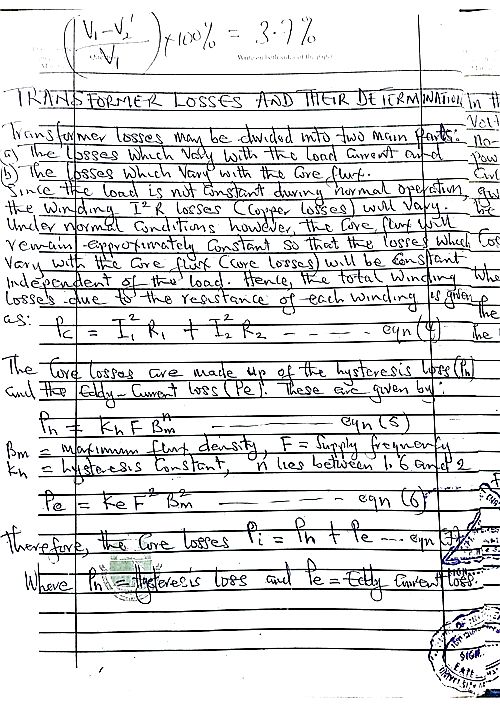 (V₁ - V₂' / V₁) × 100% = 3.7%
Write on both sides of the paper
TRANSFORMER LOSSES AND THEIR DETERMINATION
Transformer losses may be divided into two main parts:
a) The losses which vary with the load current and
(b) The losses which vary with the core flux.
Since the load is not constant during normal operation,
the winding I²R losses (copper losses) will vary.
Under normal conditions however, the core flux will
remain approximately constant so that the losses which
vary with the core flux (core losses) will be constant
independent of the load. Hence, the total winding
losses due to the resistance of each winding is given
as: Pc = I₁² R₁ + I₂² R₂ ---- eqn (4)
The core losses are made up of the hysteresis loss (Ph)
and the Eddy-Current loss (Pe). These are given by:
Ph = Kh F Bmⁿ -------- eqn (5)
Bm = maximum flux density, F = Supply frequency
Kh = hysteresis constant, n lies between 1.6 and 2
Pe = Ke F² Bm² -------- eqn (6)
Therefore, the core losses Pi = Ph + Pe --- eqn
Where Ph = Hysteresis loss and Pe = Eddy Current loss.
In th
no-
pow
Cos
Whe
the
SIGN
DATE